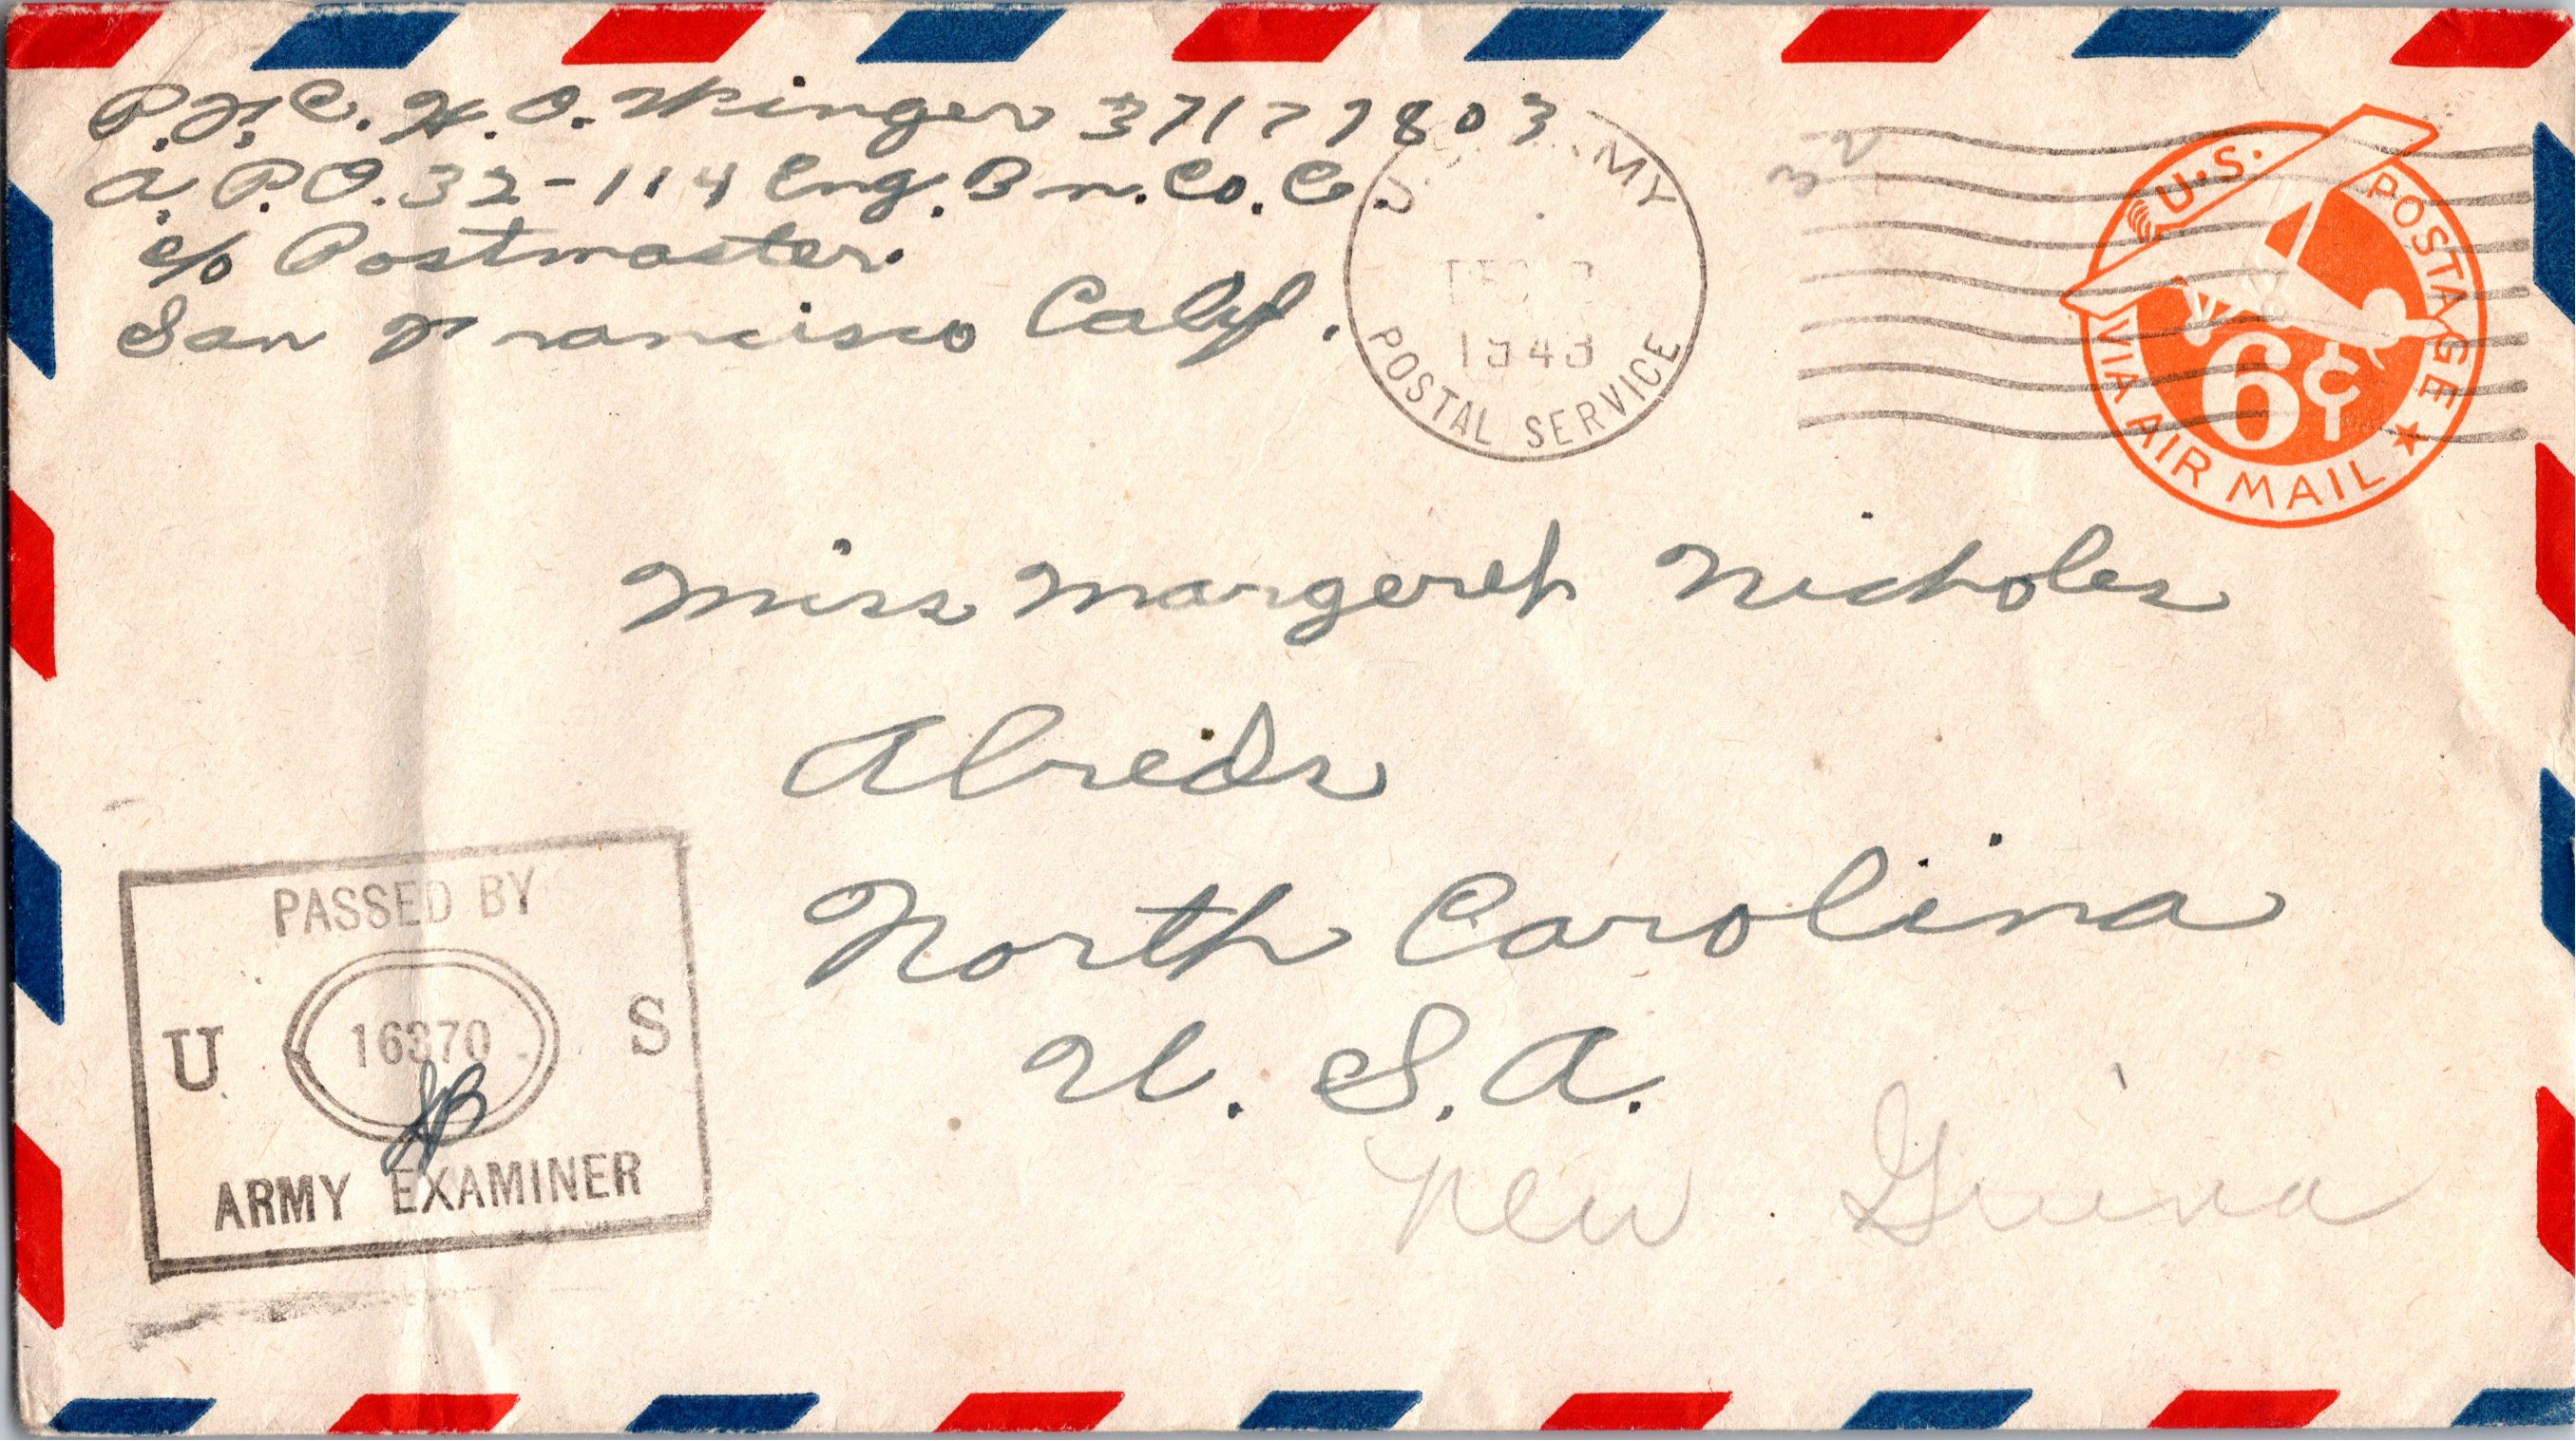 P.F.C. H.O. Winger 37177803
A.P.O. 32-114 Eng. Bn. Co. C.
c/o Postmaster.
San Francisco Calif.
MY
DEC
1943
POSTAL SERVICE
32
U.S. POSTAGE
6¢
VIA AIR MAIL
Miss Margeret Nicholes
Alreds
North Carolina
U. S. A.
New Guina
PASSED BY
U 16370 S
JB
ARMY EXAMINER